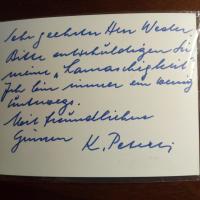 Sehr geehrter Herr Wester
Bitte entschuldigen Sie
meine "Lamaschigkeit"
Ich bin immer ein wenig
unterwegs.
Mit freundlichen
Grüssen
K. Peter